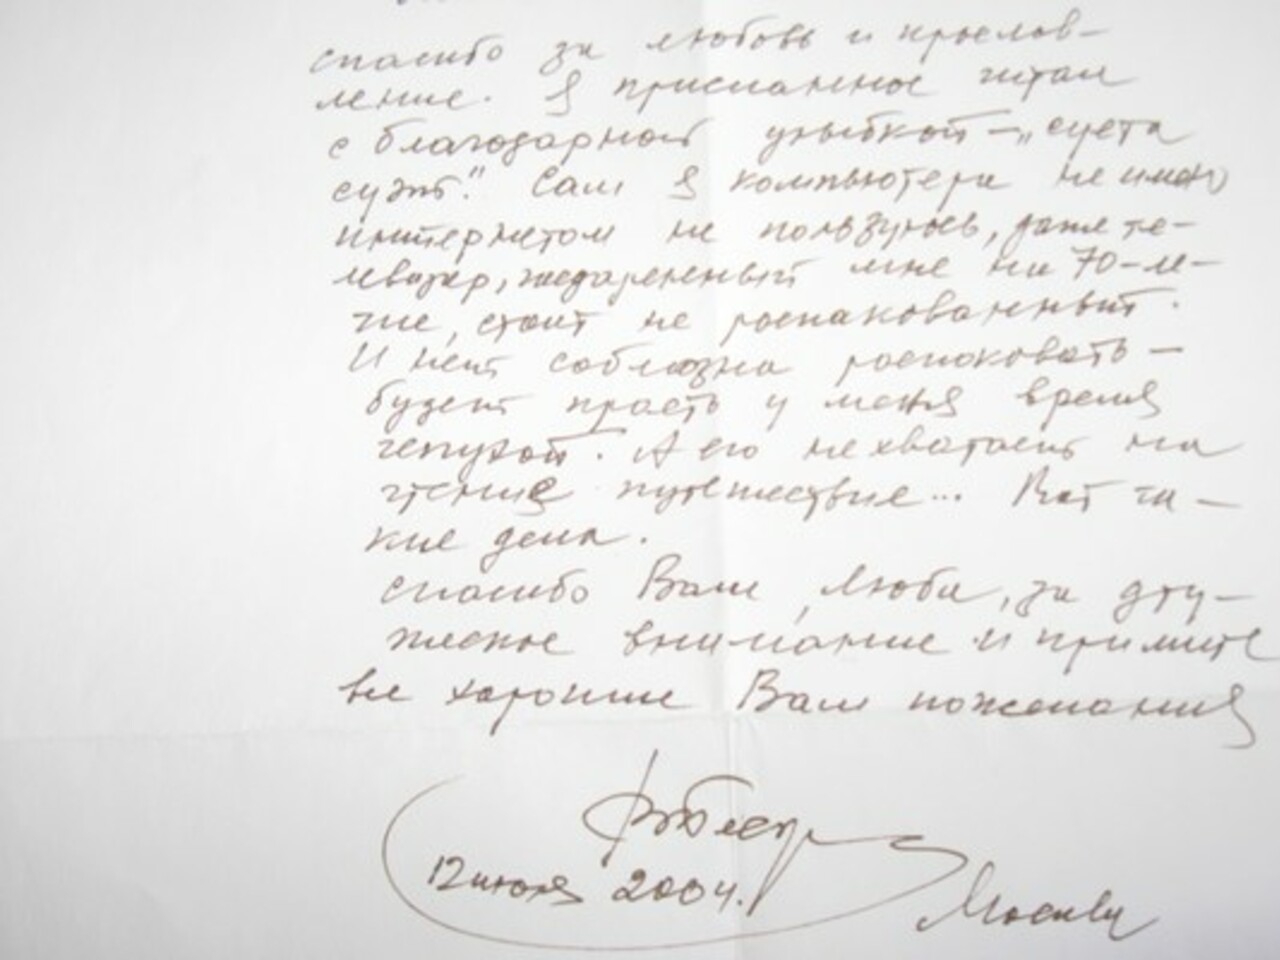 спасибо за любовь и прослав-
ление. Я присланное читал
с благодарной улыбкой – „суета
сует." Сам я компьютера не имею
интернетом не пользуюсь, даже те-
левизор, подаренный мне на 70-ле-
тие, стоит не распакованный.
И нет соблазна распаковать –
будет красть у меня время
чепухой. А его не хватает на
чтение путешествие... Вот та-
кие дела.
спасибо Вам, Люба, за дру-
жеское внимание и примите
все хорошие Вам пожелания
12 июля 2004.
Москва